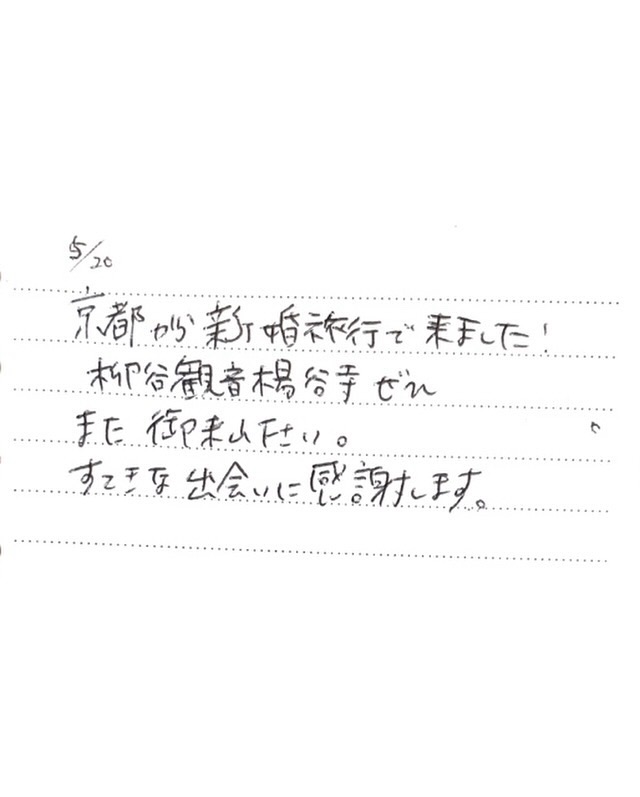 5/20
京都から新婚旅行で来ました!
柳谷観音楊谷寺 ぜひ
また 御来山下さい。
すてきな出会いに感謝します。